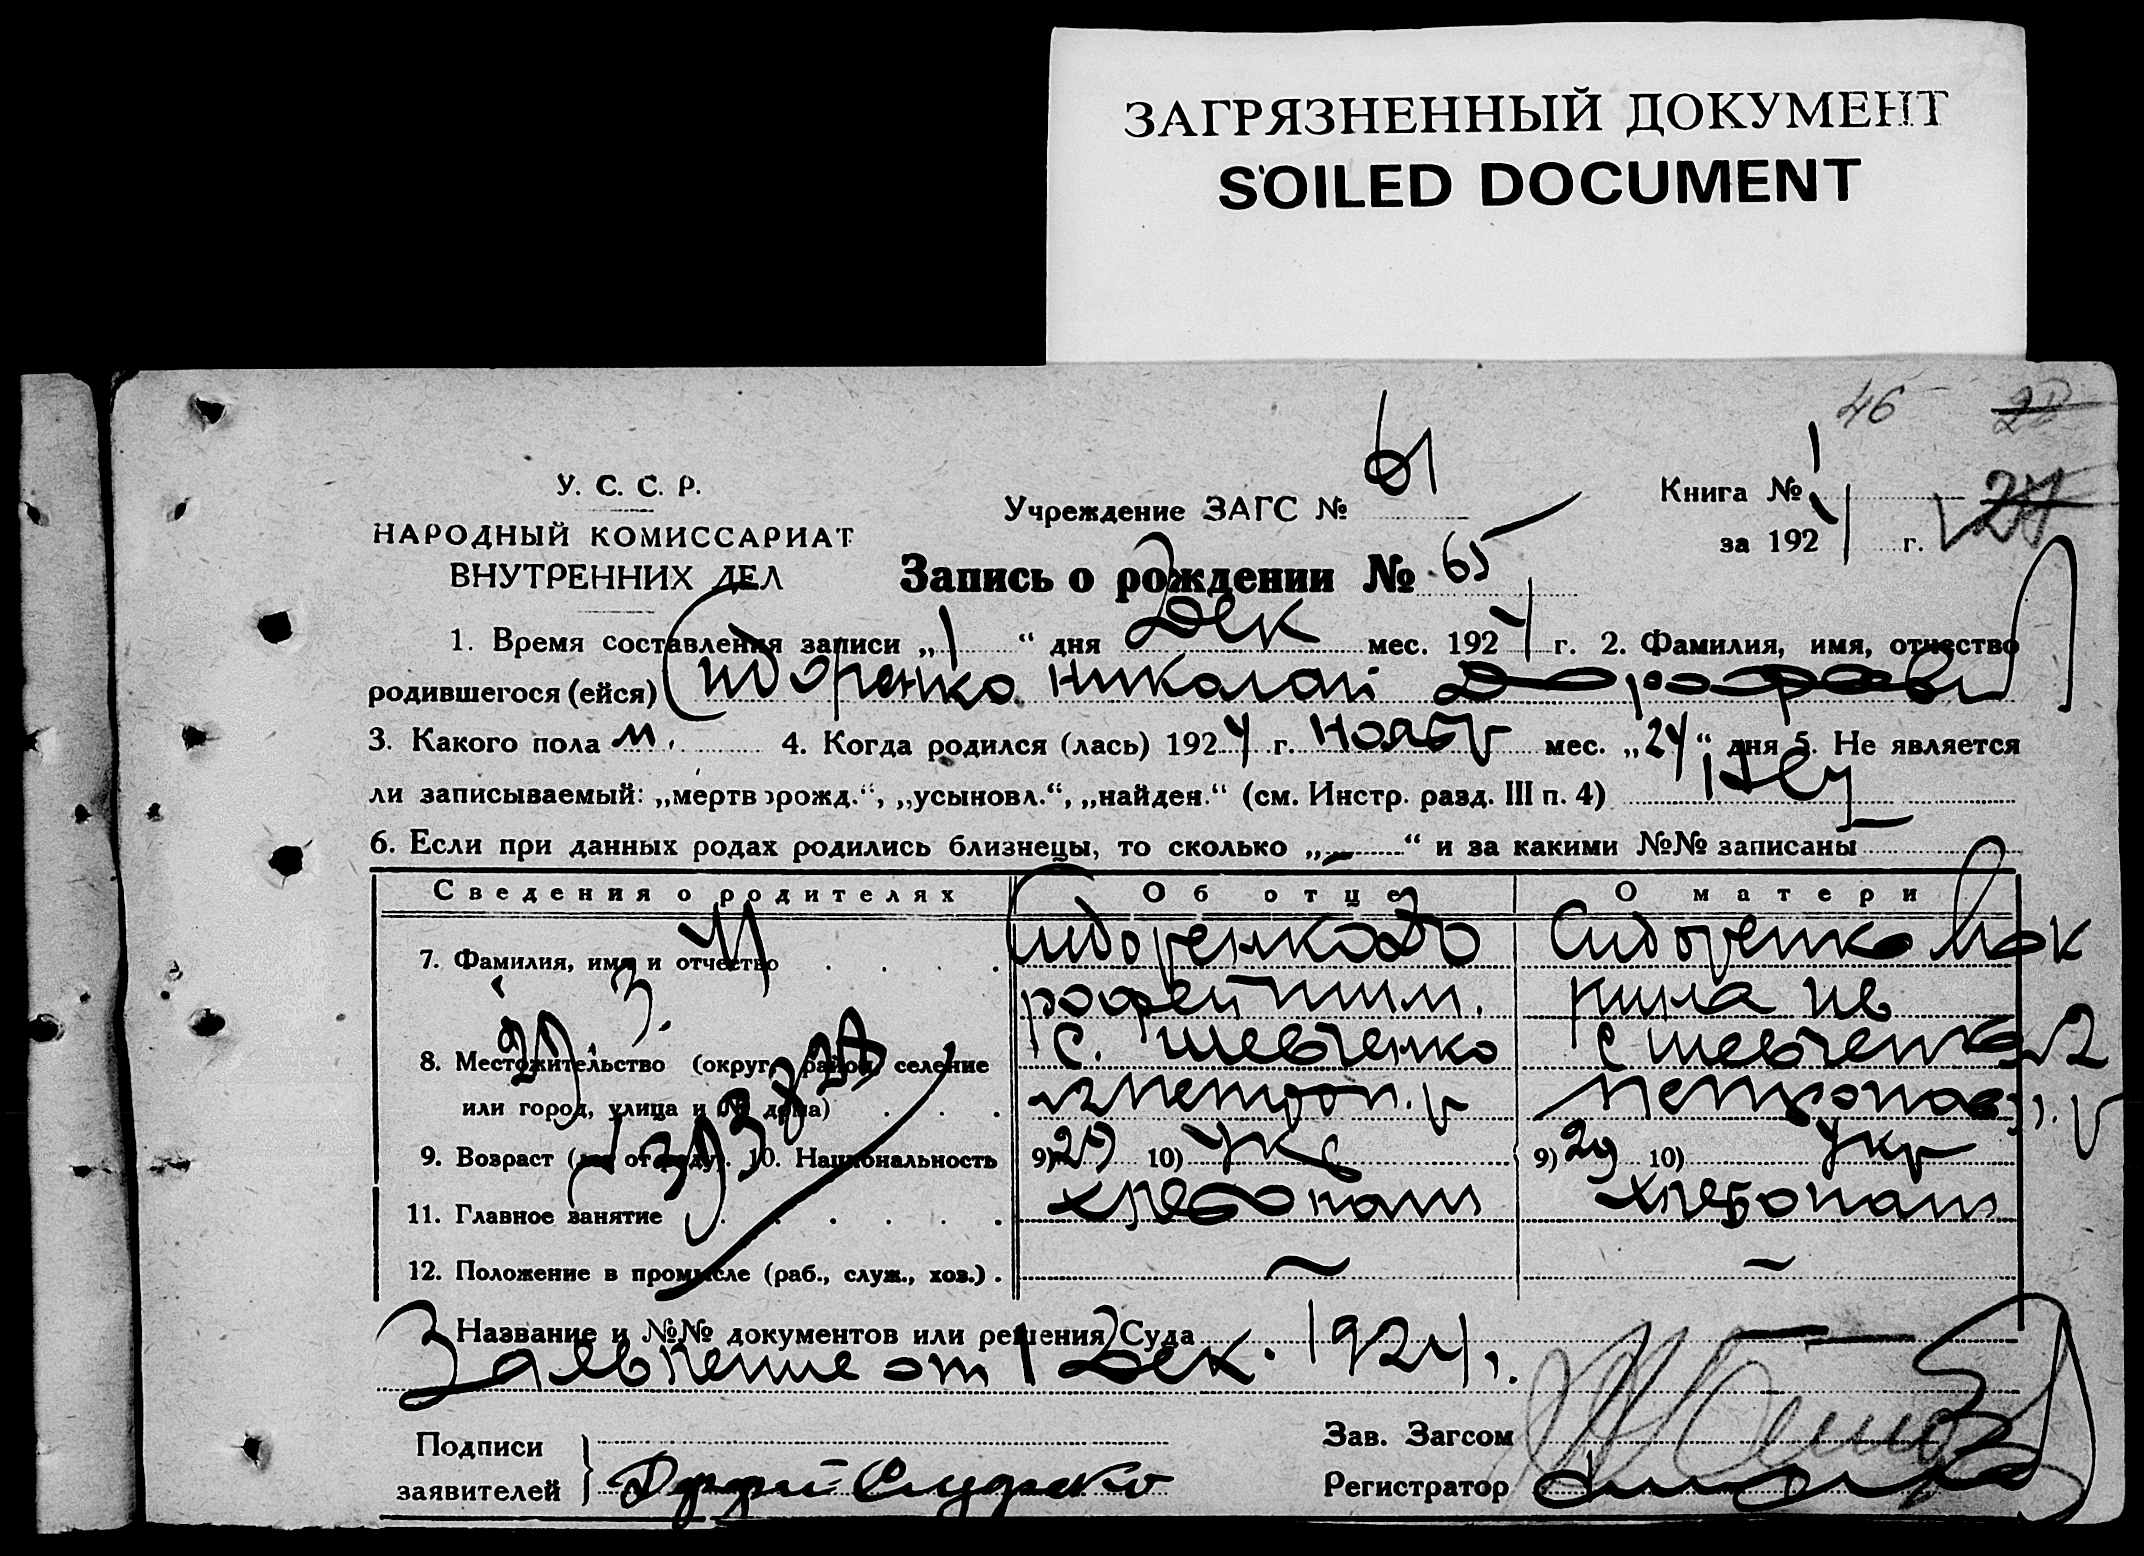 ЗАГРЯЗНЕННЫЙ ДОКУМЕНТ
SOILED DOCUMENT
46 28
У. С. С. Р.
НАРОДНЫЙ КОМИССАРИАТ
ВНУТРЕННИХ ДЕЛ
Учреждение ЗАГС № 61
Книга № 1
за 1924 г.
27
Запись о рождении № 65
1. Время составления записи „1“ дня Дек мес. 1924 г. 2. Фамилия, имя, отчество
родившегося (ейся) Сидоренко Николай
3. Какого пола м. 4. Когда родился (лась) 1924 г. нояб мес. „24“ дня 5. Не является
ли записываемый: „мертворожд.“, „усыновл.“, „найден.“ (см. Инстр. разд. III п. 4) Нет
6. Если при данных родах родились близнецы, то сколько „—“ и за какими №№ записаны —
Сведения о родителях Об отце О матери
7. Фамилия, имя и отчество Сидоренко До Сидоренко Мок
рофей рина Ив
8. Местожительство (округ, район, селение с. Шевченко с Шевченко
или город, улица и № дома) Петроп. Петропав
9. Возраст (лет от роду). 10. Национальность 9) 29 10) Укр 9) 29 10) Укр
11. Главное занятие хлебопаш хлебопаш
12. Положение в промысле (раб., служ., хоз.) . — —
Название и №№ документов или решения Суда
Заявление от 1 Дек. 1924 г.
Подписи
заявителей
Зав. Загсом
Регистратор